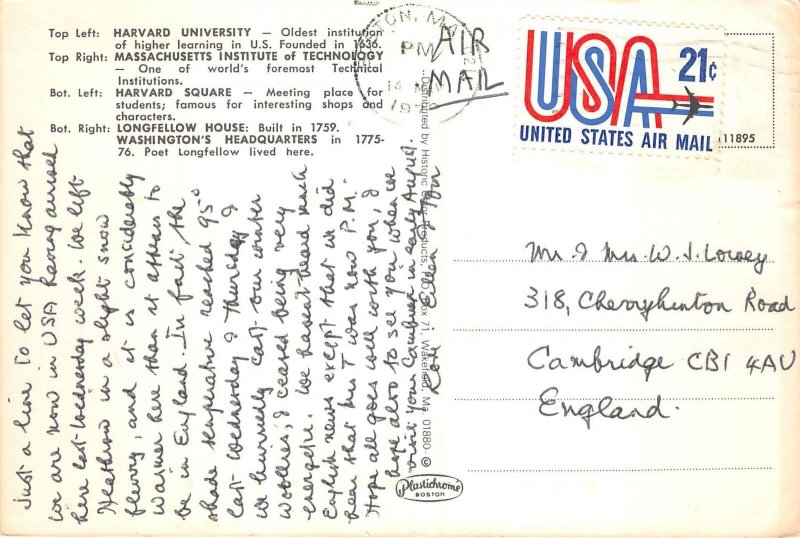 Top Left: HARVARD UNIVERSITY — Oldest institution
of higher learning in U.S. Founded in 1636.
Top Right: MASSACHUSETTS INSTITUTE of TECHNOLOGY
— One of world's foremost Technical
Institutions.
Bot. Left: HARVARD SQUARE — Meeting place for
students; famous for interesting shops and
characters.
Bot. Right: LONGFELLOW HOUSE: Built in 1759.
WASHINGTON'S HEADQUARTERS in 1775-
76. Poet Longfellow lived here.
PM
AIR
MAIL
USA 21¢
UNITED STATES AIR MAIL
11895
Just a line to let you know that
we are now in USA having arrived
here last Wednesday week. We left
Heathrow in a slight snow
flurry, and it is considerably
warmer here than it appears to
be in England. In fact the
shade temperature reached 95°
last Wednesday & Thursday &
we hurriedly cast our winter
woollies, & ceased being very
energetic. We haven't heard much
English news except that we did
hear that Mrs T was now P.M.
Hope all goes well with you, I
hope also to see you when we
visit your Cambridge in early August.
Love Eileen
Distributed by Historic Color Products, P.O. Box 71, Wakefield, Ma. 01880 ©
Plastichrome
BOSTON
Mr & Mrs W. J. Lovey
318, Cherryhinton Road
Cambridge CB1 4AU
England.